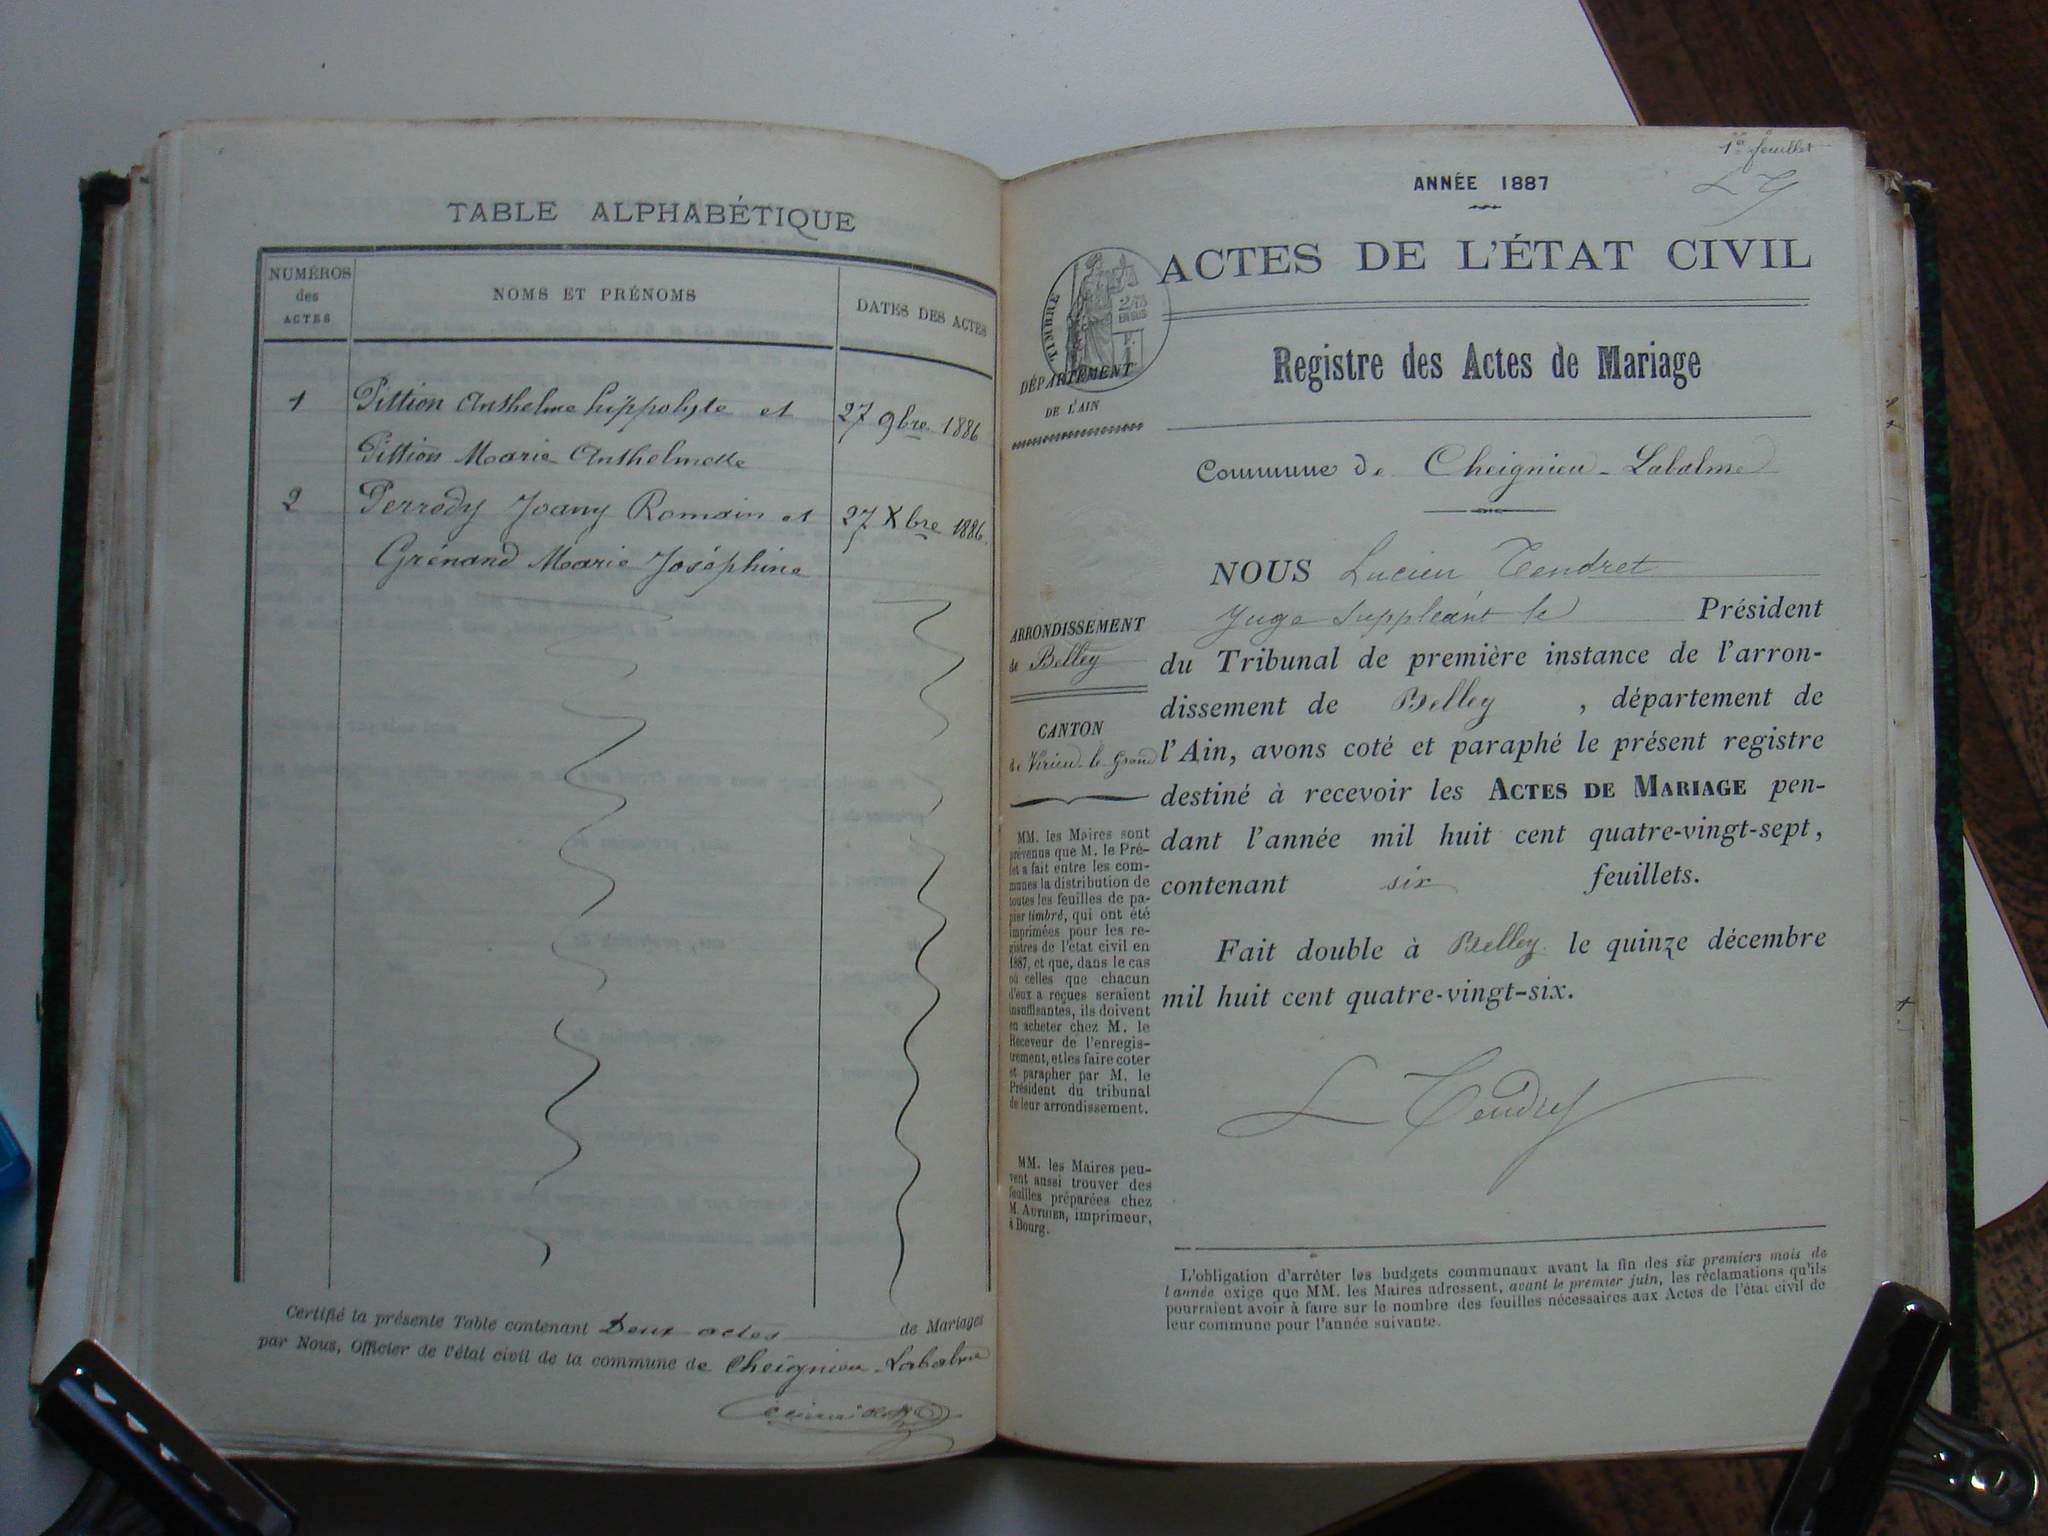 TABLE ALPHABÉTIQUE
NUMÉROS
des
ACTES
NOMS ET PRÉNOMS
DATES DES ACTES
1 Pittion Anthelme hippolyte et 27 9bre 1886
Pittion Marie Anthelmette
2 Perrody Joany Romain et 27 Xbre 1886.
Grénand Marie Joséphine
Certifié la présente Table contenant Deux actes de Mariages
par Nous, Officier de l'état civil de la commune de Cheignieu-Labalme
1er feuillet
LT
ANNÉE 1887
ACTES DE L'ÉTAT CIVIL
TIMBRE
2/10
EN SUS
DÉPARTEMENT
DE L'AIN
Registre des Actes de Mariage
Commune de Cheignieu-Labalme
NOUS Lucien Tendret
Juge suppléant le Président
du Tribunal de première instance de l'arron-
dissement de Belley, département de
l'Ain, avons coté et paraphé le présent registre
destiné à recevoir les ACTES DE MARIAGE pen-
dant l'année mil huit cent quatre-vingt-sept,
contenant six feuillets.
Fait double à Belley le quinze décembre
mil huit cent quatre-vingt-six.
L Tendret
ARRONDISSEMENT
de Belley
CANTON
de Virieu-le-Grand
MM. les Maires sont
prévenus que M. le Pré-
fet a fait entre les com-
munes la distribution de
toutes les feuilles de pa-
pier timbré, qui ont été
imprimées pour les re-
gistres de l'état civil en
1887, et que, dans le cas
où celles que chacun
d'eux a reçues seraient
insuffisantes, ils doivent
en acheter chez M. le
Receveur de l'enregis-
trement, et les faire coter
et parapher par M. le
Président du tribunal
de leur arrondissement.
MM. les Maires peu-
vent aussi trouver des
feuilles préparées chez
M. AUTHIER, imprimeur,
à Bourg.
L'obligation d'arrêter les budgets communaux avant la fin des six premiers mois de
l'année exige que MM. les Maires adressent, avant le premier juin, les réclamations qu'ils
pourraient avoir à faire sur le nombre des feuilles nécessaires aux Actes de l'état civil de
leur commune pour l'année suivante.